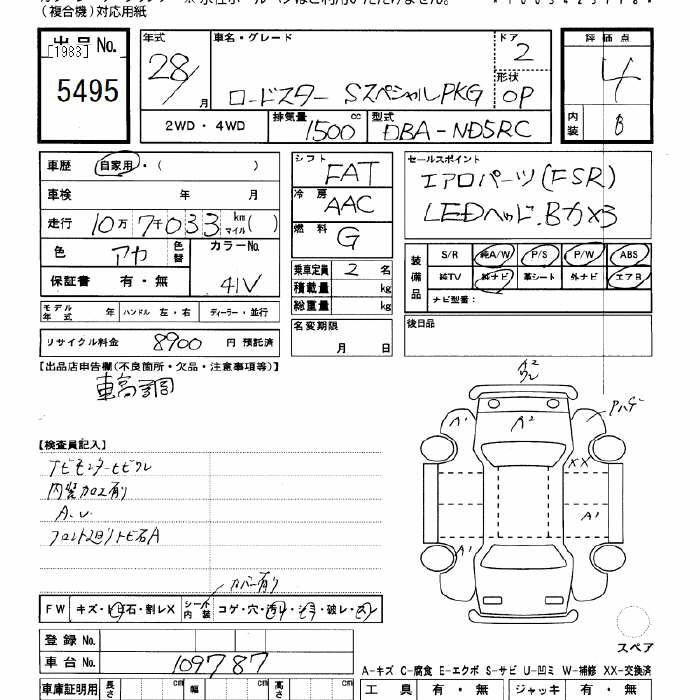 (複合機)対応用紙
出品No.
[1983]
5495
年式
28/
月
車名・グレード
ロードスター SスペシャルPKG
ドア
2
形状
OP
評価点
4
内装
B
2WD・4WD
排気量
1500
cc
型式
DBA-ND5RC
車歴 自家用・( )
車検 年 月
走行 10万7千033 km マイル ( )
色 アカ 色替
カラーNo.
41V
保証書 有・無
モデル年式 年 ハンドル 左・右 ディーラー・並行
リサイクル料金 8900 円 預託済
シフト FAT
冷房 AAC
燃料 G
乗車定員 2 名
積載量 kg
総重量 kg
名変期限
月 日
セールスポイント
エアロパーツ(FSR)
LEDヘッド.Bカメラ
装備品
S/R 純A/W P/S P/W ABS
純TV 純ナビ 革シート 外ナビ エアB
ナビ型番:
後日品
[出品店申告欄(不良箇所・欠品・注意事項等)]
車高調
[検査員記入]
内装加工有り
A.U.
フロント廻りトビ石A
カバー有り
FW キズ・トビ石・割レX シート内装 コゲ・穴・汚レ・シミ・破レ・スレ
登録No.
車台No. 109787
車庫証明用 長さ cm 幅 cm 高さ cm
A2
W2
A1
A2
アハゲ
XX
A1
A1
スペア
A-キズ C-腐食 E-エクボ S-サビ U-凹ミ W-補修 XX-交換済
工具 有・無 ジャッキ 有・無